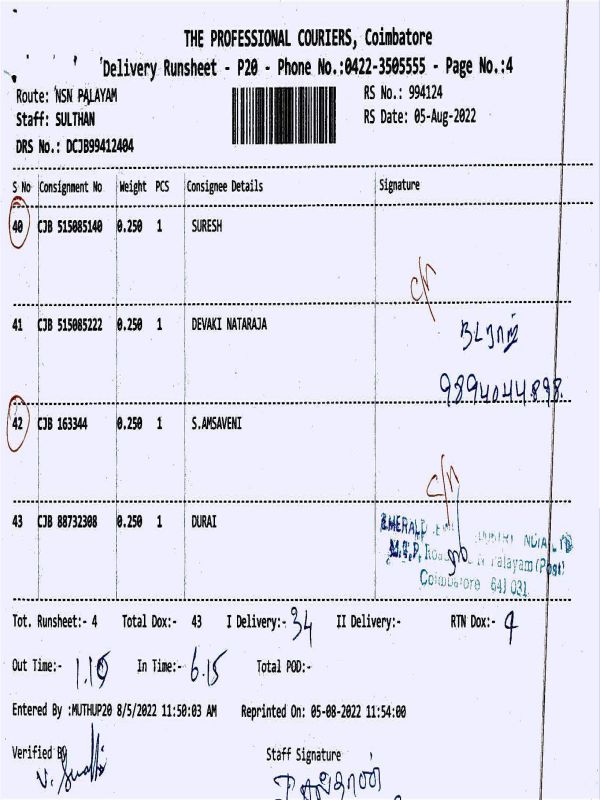 THE PROFESSIONAL COURIERS, Coimbatore
Delivery Runsheet - P20 - Phone No.:0422-3505555 - Page No.:4
Route: NSN PALAYAM RS No.: 994124
Staff: SULTHAN RS Date: 05-Aug-2022
DRS No.: DCJB99412404
S No Consignment No Weight PCS Consignee Details Signature
40 CJB 515085140 0.250 1 SURESH
41 CJB 515085222 0.250 1 DEVAKI NATARAJA நடராஜ்
9894044898.
42 CJB 163344 0.250 1 S.AMSAVENI
43 CJB 88732308 0.250 1 DURAI EMERALD
Palayam (Post)
Coimbatore 641 031.
Tot. Runsheet:- 4 Total Dox:- 43 I Delivery:- 34 II Delivery:- RTN Dox:- 9
Out Time:- 1.10 In Time:- 6.15 Total POD:-
Entered By :MUTHUP20 8/5/2022 11:50:03 AM Reprinted On: 05-08-2022 11:54:00
Verified By Staff Signature